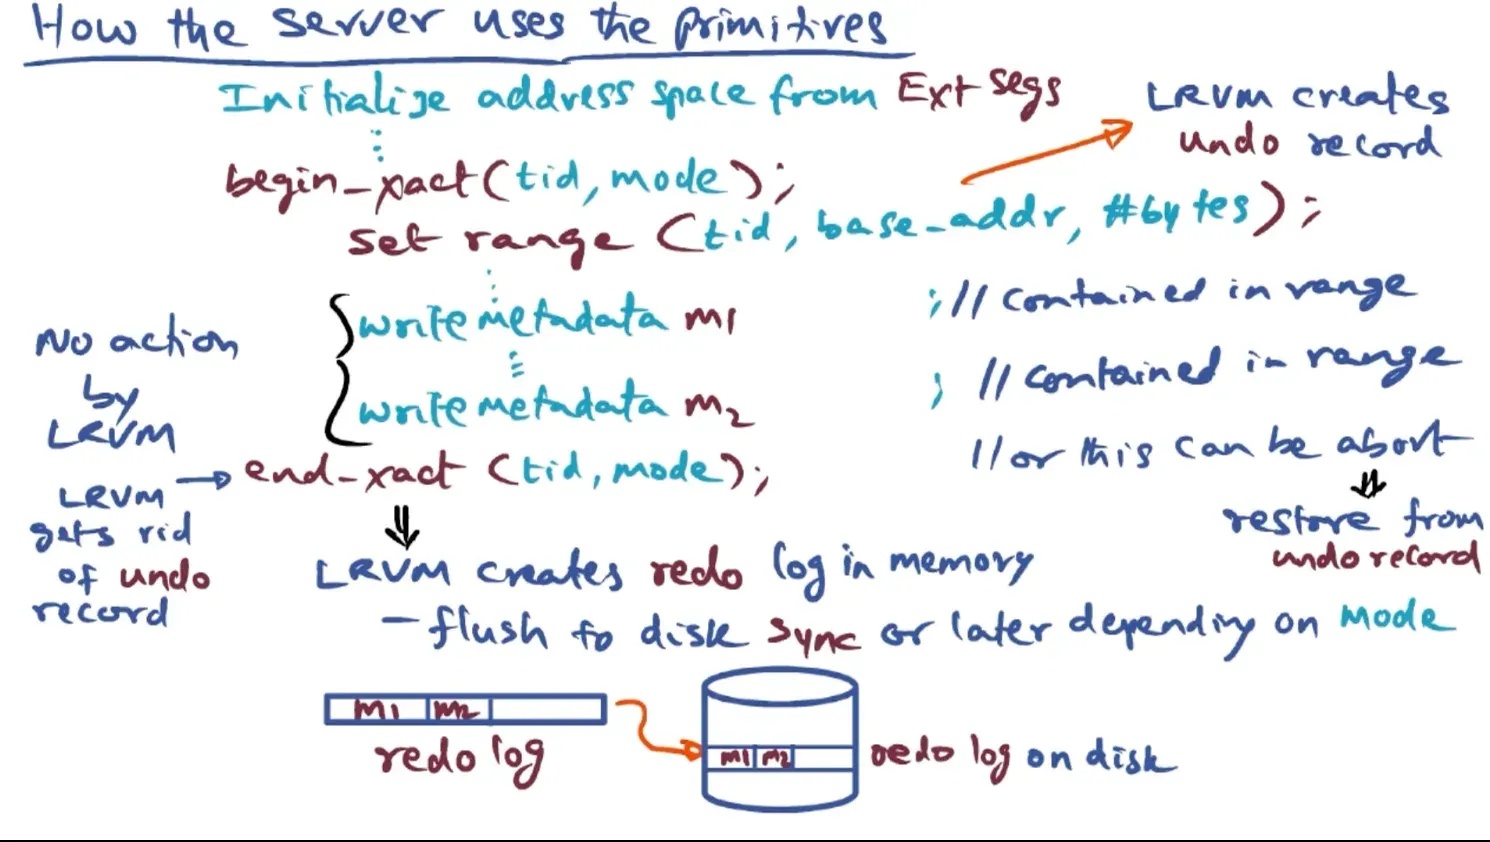 How the server uses the primitives
Initialize address space from Ext segs
LRVM creates
undo record
begin_xact(tid, mode);
set range (tid, base_addr, #bytes);
write metadata m1 ; // contained in range
write metadata m2 ; // contained in range
No action
by
LRVM
end_xact (tid, mode); // or this can be abort
restore from
undo record
LRVM
gets rid
of undo
record
LRVM creates redo log in memory
- flush to disk sync or later depending on mode
m1 m2
redo log
m1 m2
redo log on disk